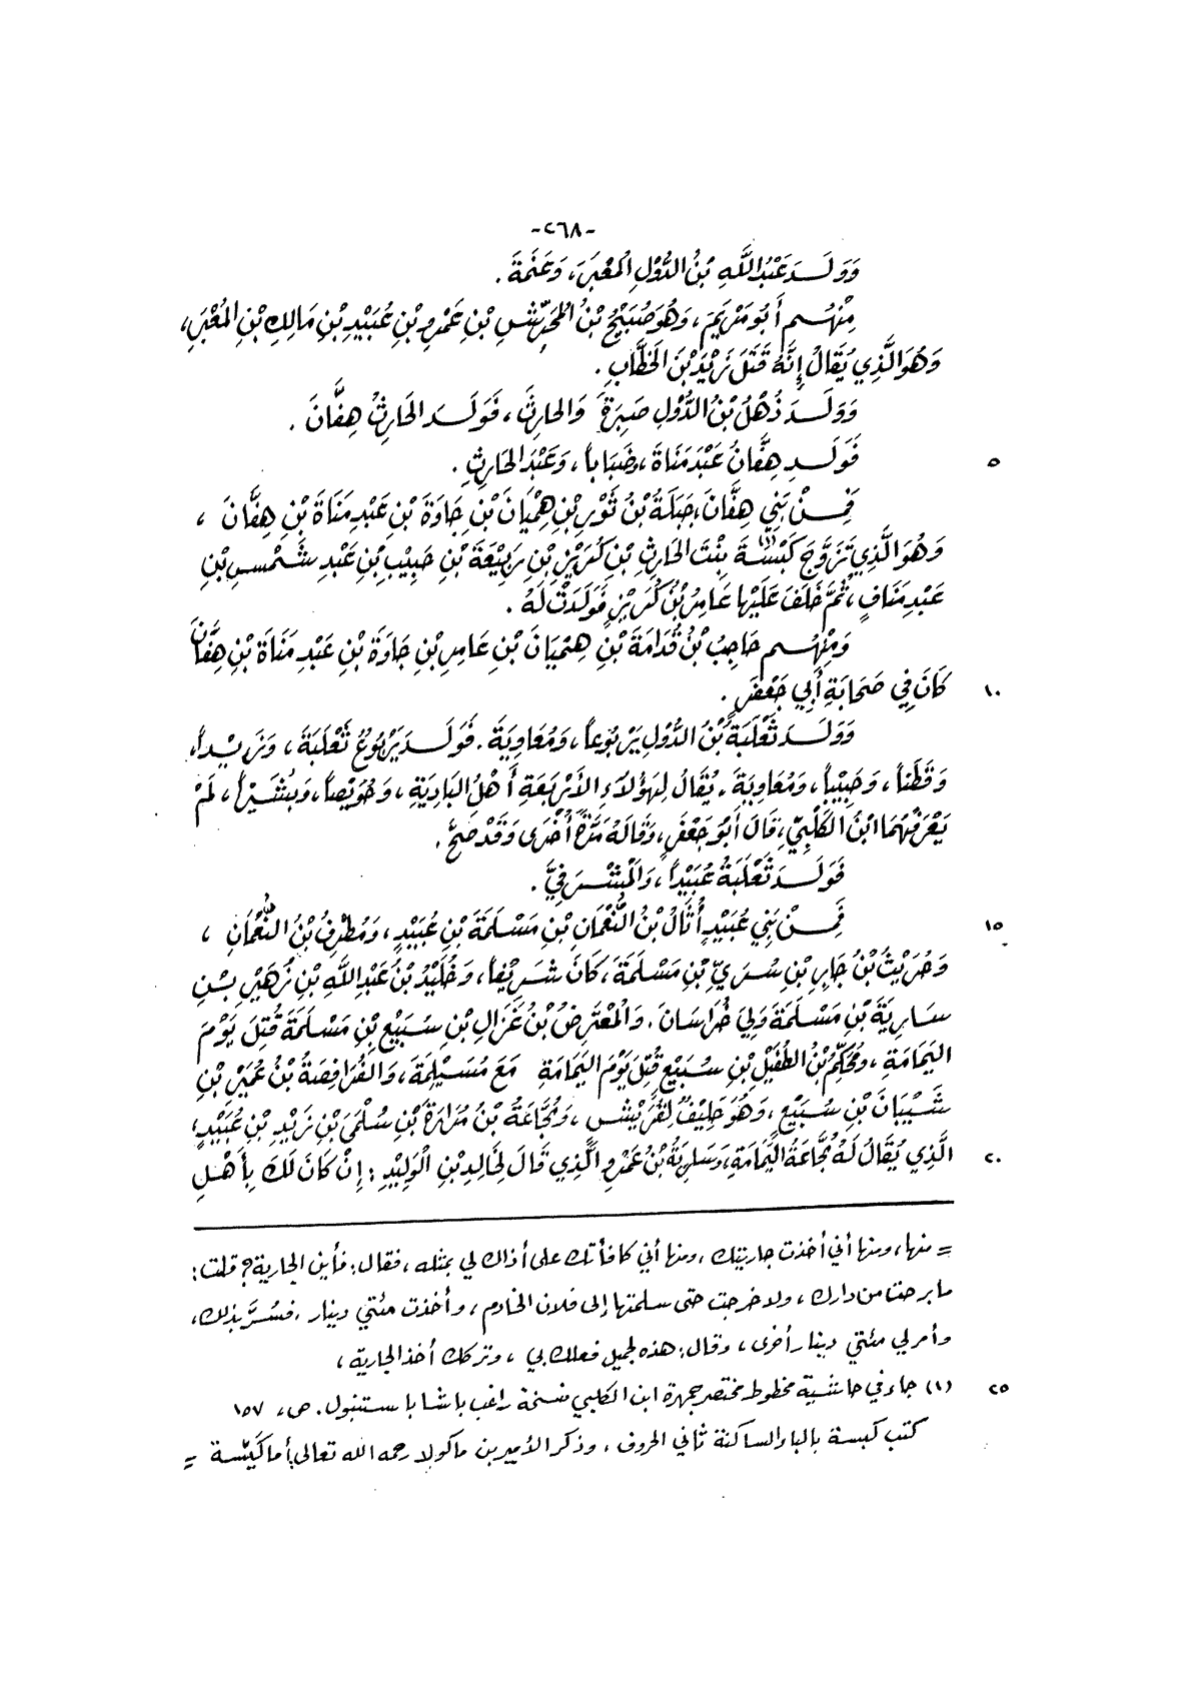 -٢٦٨-
وَوَلَـدَ عَبْدُ اللَّهِ بْنُ الدُّوْلِ المُعْبَرَ، وَعَنَمَةَ .
مِنْهُـم أَبُو مَرْيَمَ، وَهُوَ صُبَيْحُ بْنُ المُحَرِّشِ بْنِ عَمْرِو بْنِ عُبَيْدِ بْنِ مَالِكِ بْنِ المُعْبَرِ،
وَهُوَ الَّذِي يُقَالُ إِنَّهُ قَتَلَ زَيْدَ بْنَ الخَطَّابِ .
وَوَلَـدَ ذُهْلُ بْنُ الدُّوْلِ صَبِرَةَ وَالحَارِثَ، فَوَلَـدَ الحَارِثُ هِفَّانَ .
٥ فَوَلَـدِ هِفَّانُ عَبْدَ مَنَاةَ، وَضَبَاباً، وَعَبْدَ الحَارِثِ .
فَمِـنْ بَنِي هِفَّانَ، جَبَلَةُ بْنُ ثَوْرِ بْنِ هِمْيَانَ بْنِ جَاوَةَ بْنِ عَبْدِ مَنَاةَ بْنِ هِفَّانَ ،
وَهُوَ الَّذِي تَزَوَّجَ كَبْسَةَ (١) بِنْتَ الحَارِثِ بْنِ كُرَيْزِ بْنِ رَبِيْعَةَ بْنِ حَبِيْبِ بْنِ عَبْدِ شَـمْسِ بْنِ
عَبْدِ مَنَافٍ، ثُمَّ خَلَفَ عَلَيْهَا عَامِرُ بْنُ كُرَيْزٍ فَوَلَدَتْ لَهُ .
وَمِنْهُـم حَاجِبُ بْنُ قُدَامَةَ بْنِ هِمْيَانَ بْنِ عَامِرِ بْنِ جَاوَةَ بْنِ عَبْدِ مَنَاةَ بْنِ هِفَّانَ
١٠ كَانَ فِي صَحَابَةِ أَبِي جَعْفَرٍ .
وَوَلَـدَ ثَعْلَبَةُ بْنُ الدُّوْلِ يَرْبُوعاً، وَمُعَاوِيَةَ. فَوَلَـدَ يَرْبُوعُ ثَعْلَبَةَ ، وَزَيْـداً،
وَقَطَناً، وَحَبِيْباً، وَمُعَاوِيَةَ . يُقَالُ لِهَؤُلَاءِ الأَرْبَعَةِ أَهْلُ البَادِيَةِ ، وَحُوَيْصاً، وَبُشَيْراً، لَمْ
يَعْرِفْهُمَا ابْنُ الكَلْبِيِّ، قَالَ أَبُو جَعْفَرٍ، وَقَالَهُ مَرَّةً أُخْرَى وَقَدْ صَحَّ .
فَوَلَـدَ ثَعْلَبَةُ عُبَيْداً، وَالمُشْـرَفِيَّ .
١٥ فَمِـنْ بَنِي عُبَيْدٍ أُثَالُ بْنُ النُّعْمَانِ بْنِ مَسْلَمَةَ بْنِ عُبَيْدٍ، وَمُطْرِفُ بْنُ النُّعْمَانِ ،
وَحُرَيْثُ بْنُ جَابِرِ بْنِ سُرَيِّ بْنِ مَسْلَمَةَ، كَانَ شَـرِيْفاً، وَخُلَيْدُ بْنُ عَبْدِ اللَّهِ بْنِ زُهَيْرِ بْـنِ
سَـارِيَةَ بْنِ مَسْلَمَةَ وَلِيَ خُرَاسَانَ . وَالمُعْتَرِضُ بْنُ غَزَالِ بْنِ سُبَيْعِ بْنِ مَسْلَمَةَ قُتِلَ يَوْمَ
اليَمَامَةِ ، وَمُحَكِّمُ بْنُ الطُّفَيْلِ بْنِ سُبَيْعٍ قُتِلَ يَوْمَ اليَمَامَةِ مَعَ مُسَيْلِمَةَ، وَالفُرَافِصَةُ بْنُ عُمَيْرِ بْنِ
شَـيْبَانَ بْنِ سُبَيْعٍ ، وَهُوَ حَلِيْفٌ لِقُرَيْشٍ ، وَمُجَّاعَةُ بْنُ مُرَارَةَ بْنِ سُلْمَى بْنِ زَيْدِ بْنِ عُبَيْدٍ،
٢٠ الَّذِي يُقَالُ لَهُ مُجَّاعَةُ اليَمَامَةِ، وَسَارِيَةُ بْنُ عَمْرٍو الَّذِي قَالَ لِخَالِدِ بْنِ الْوَلِيْدِ : إِنْ كَانَ لَكَ بِأَهْـلِ
= منها، ومنها أني أخذت جاريتك ، ومنها أني كافأتك على أذاك لي بمثله ، فقال: فأين الجارية؟ قلت:
ما برحت من دارك ، ولا خرجت حتى سلمتها إلى فلان الخادم ، وأخذت مئتي دينار . فسُرَّ بذلك،
وأمر لي مئتي دينار أخرى ، وقال: هذه لجميل فعلك بي ، وتركك أخذ الجارية ،
٢٥ (١) جاء في حاشية مخطوط مختصر جمهرة ابن الكلبي نسخة راغب باشا باستنبول . ص ، ١٥٧
كتب كبسة بالباء الساكنة ثاني الحروف ، وذكر الأمير بن ماكولا رحمه الله تعالى: أما كَيِّسة =